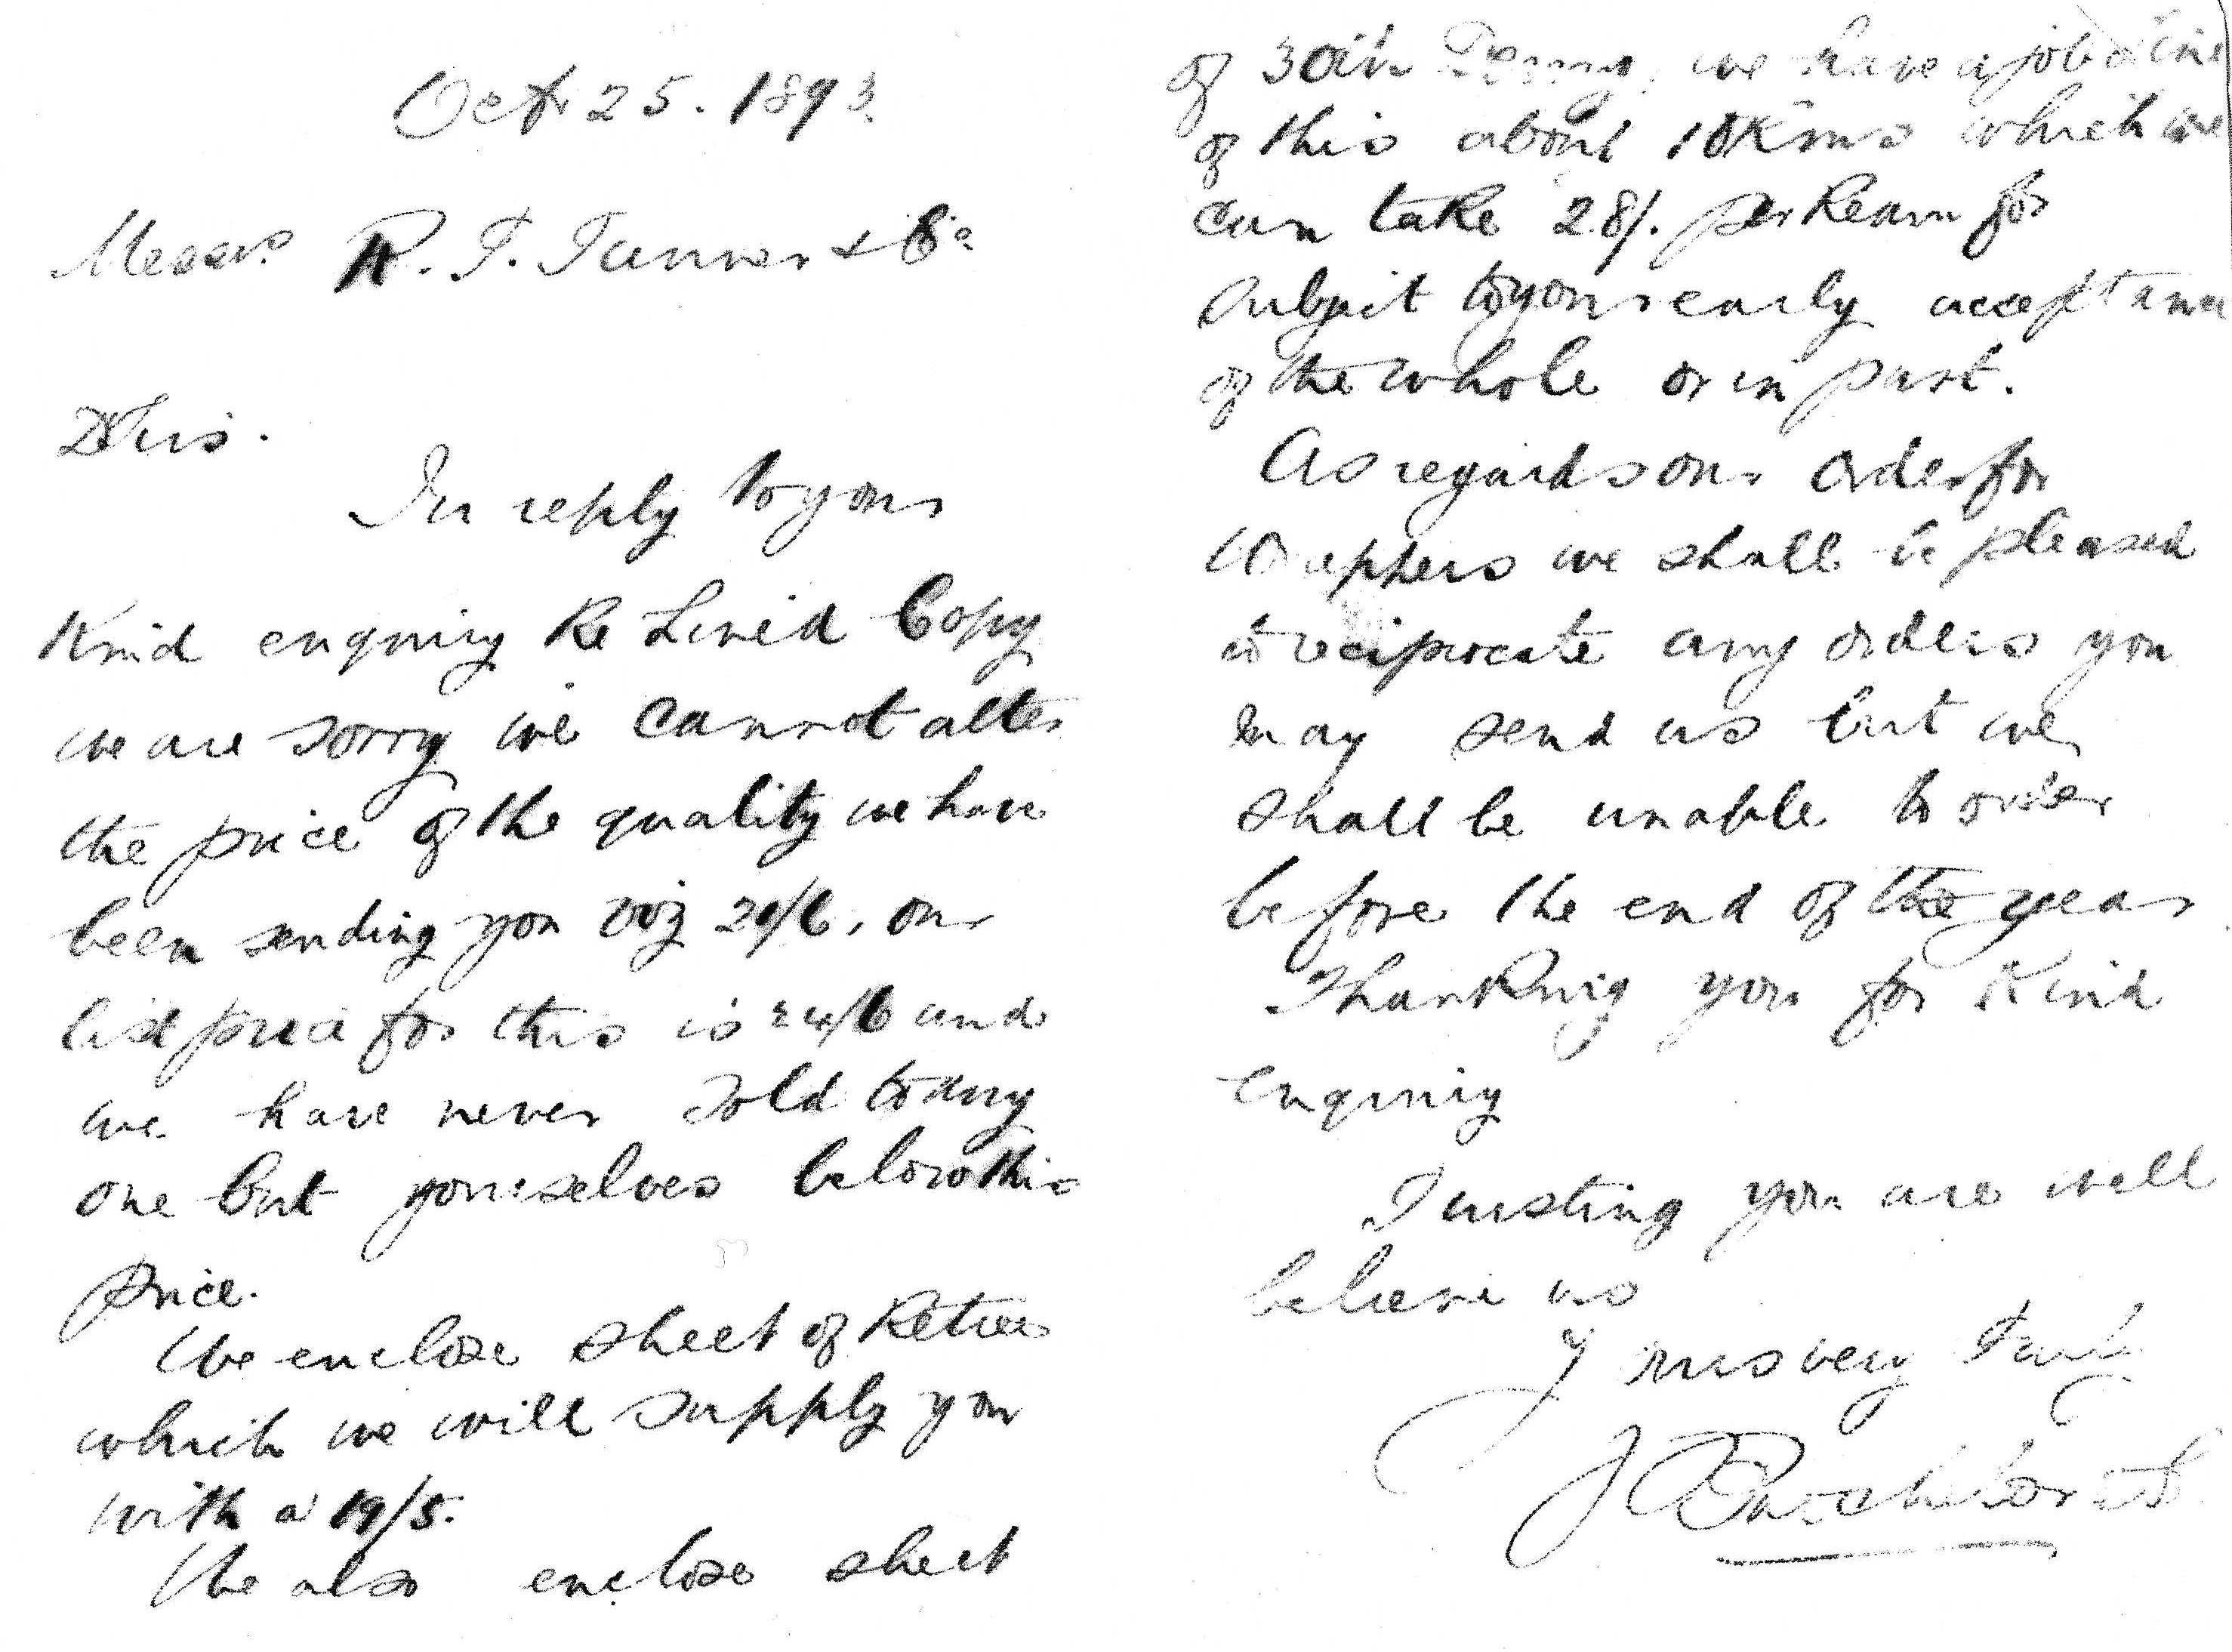 Oct 25. 1893.
Messrs R. T. Tanner & Co
D Sirs.
In reply to your
Kind enquiry Re Lined Copy
we are sorry we cannot alter
the price of the quality we have
been sending you viz 20/6, our
list price for this is 24/6 and
we have never sold to any
one but yourselves below this
price.
We enclose sheet of Retree
which we will supply you
with a 19/5.
We also enclose sheet
of 30lb we have a job line
of this about which we
can take 28/. per Ream for
subject to your early acceptance
of the whole or in part.
As regards our order for
Wrappers we shall be pleased
to reciprocate any orders you
may send us but we
shall be unable to order
before the end of the year
Thanking you for Kind
enquiry
Trusting you are well
believe us
Yours very Truly
J